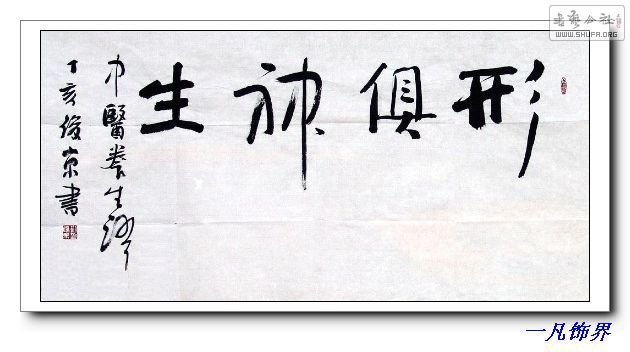 形俱神生
中醫養生
丁亥俊京書
书艺公社
WWW.SHUFA.ORG
一凡饰界